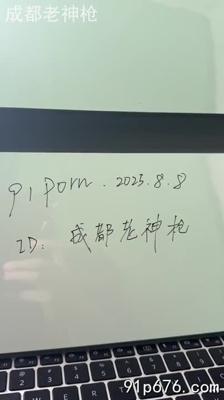 成都老神枪
91porn. 2025.8.8
ID: 成都老神枪
91p676.com